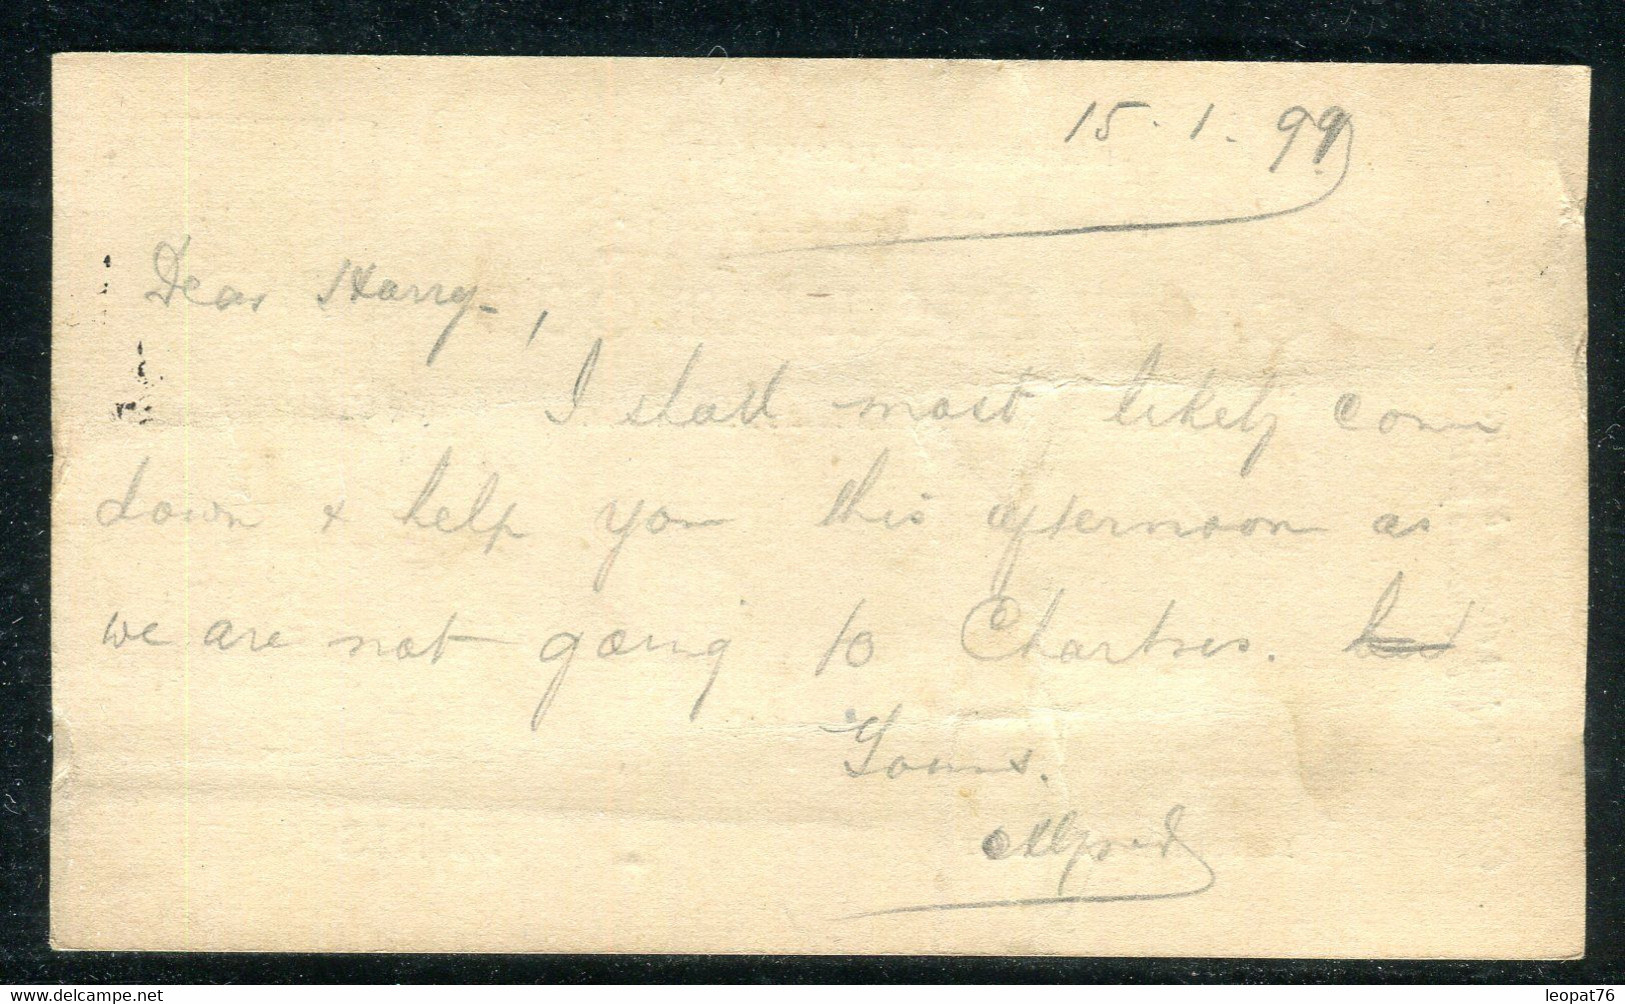 15.1.99
Dear Harry,
I shall most likely come
down & help you this afternoon as
we are not going to Chartres.
Yours.
Alfred
leopat76